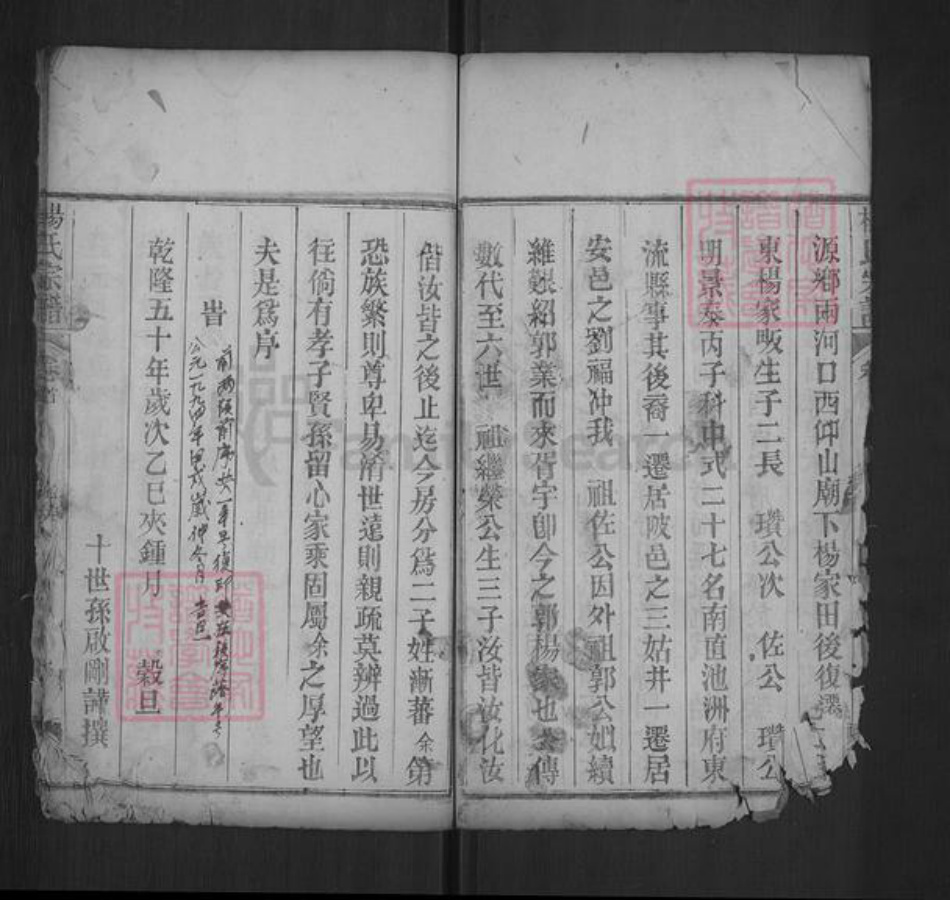 源鄉兩河口西仰山廟下楊家田後復遷
東楊家畈生子二長 瓚公次 佐公 瓚公
明景泰丙子科中式二十七名南直池洲府東
流縣事其後裔一遷居陂邑之三姑井一遷居
安邑之劉福冲我 祖佐公因外祖郭公如續
維艱紹郭業而來胥宇卽今之郭楊家也 傳
數代至六世 祖繼榮公生三子汝皆汝化汝
偕汝皆之後止迄今房分爲二子姓漸蕃余第
恐族繁則尊卑易淆世遠則親疏莫辨過此以
往倘有孝子賢孫留心家乘固屬余之厚望也
夫是爲序
旹
公元一九九四年甲戌歲仲冬月 吉旦
乾隆五十年歲次乙巳夾鍾月 穀旦
十世孫啟剛謹撰
楊氏宗譜